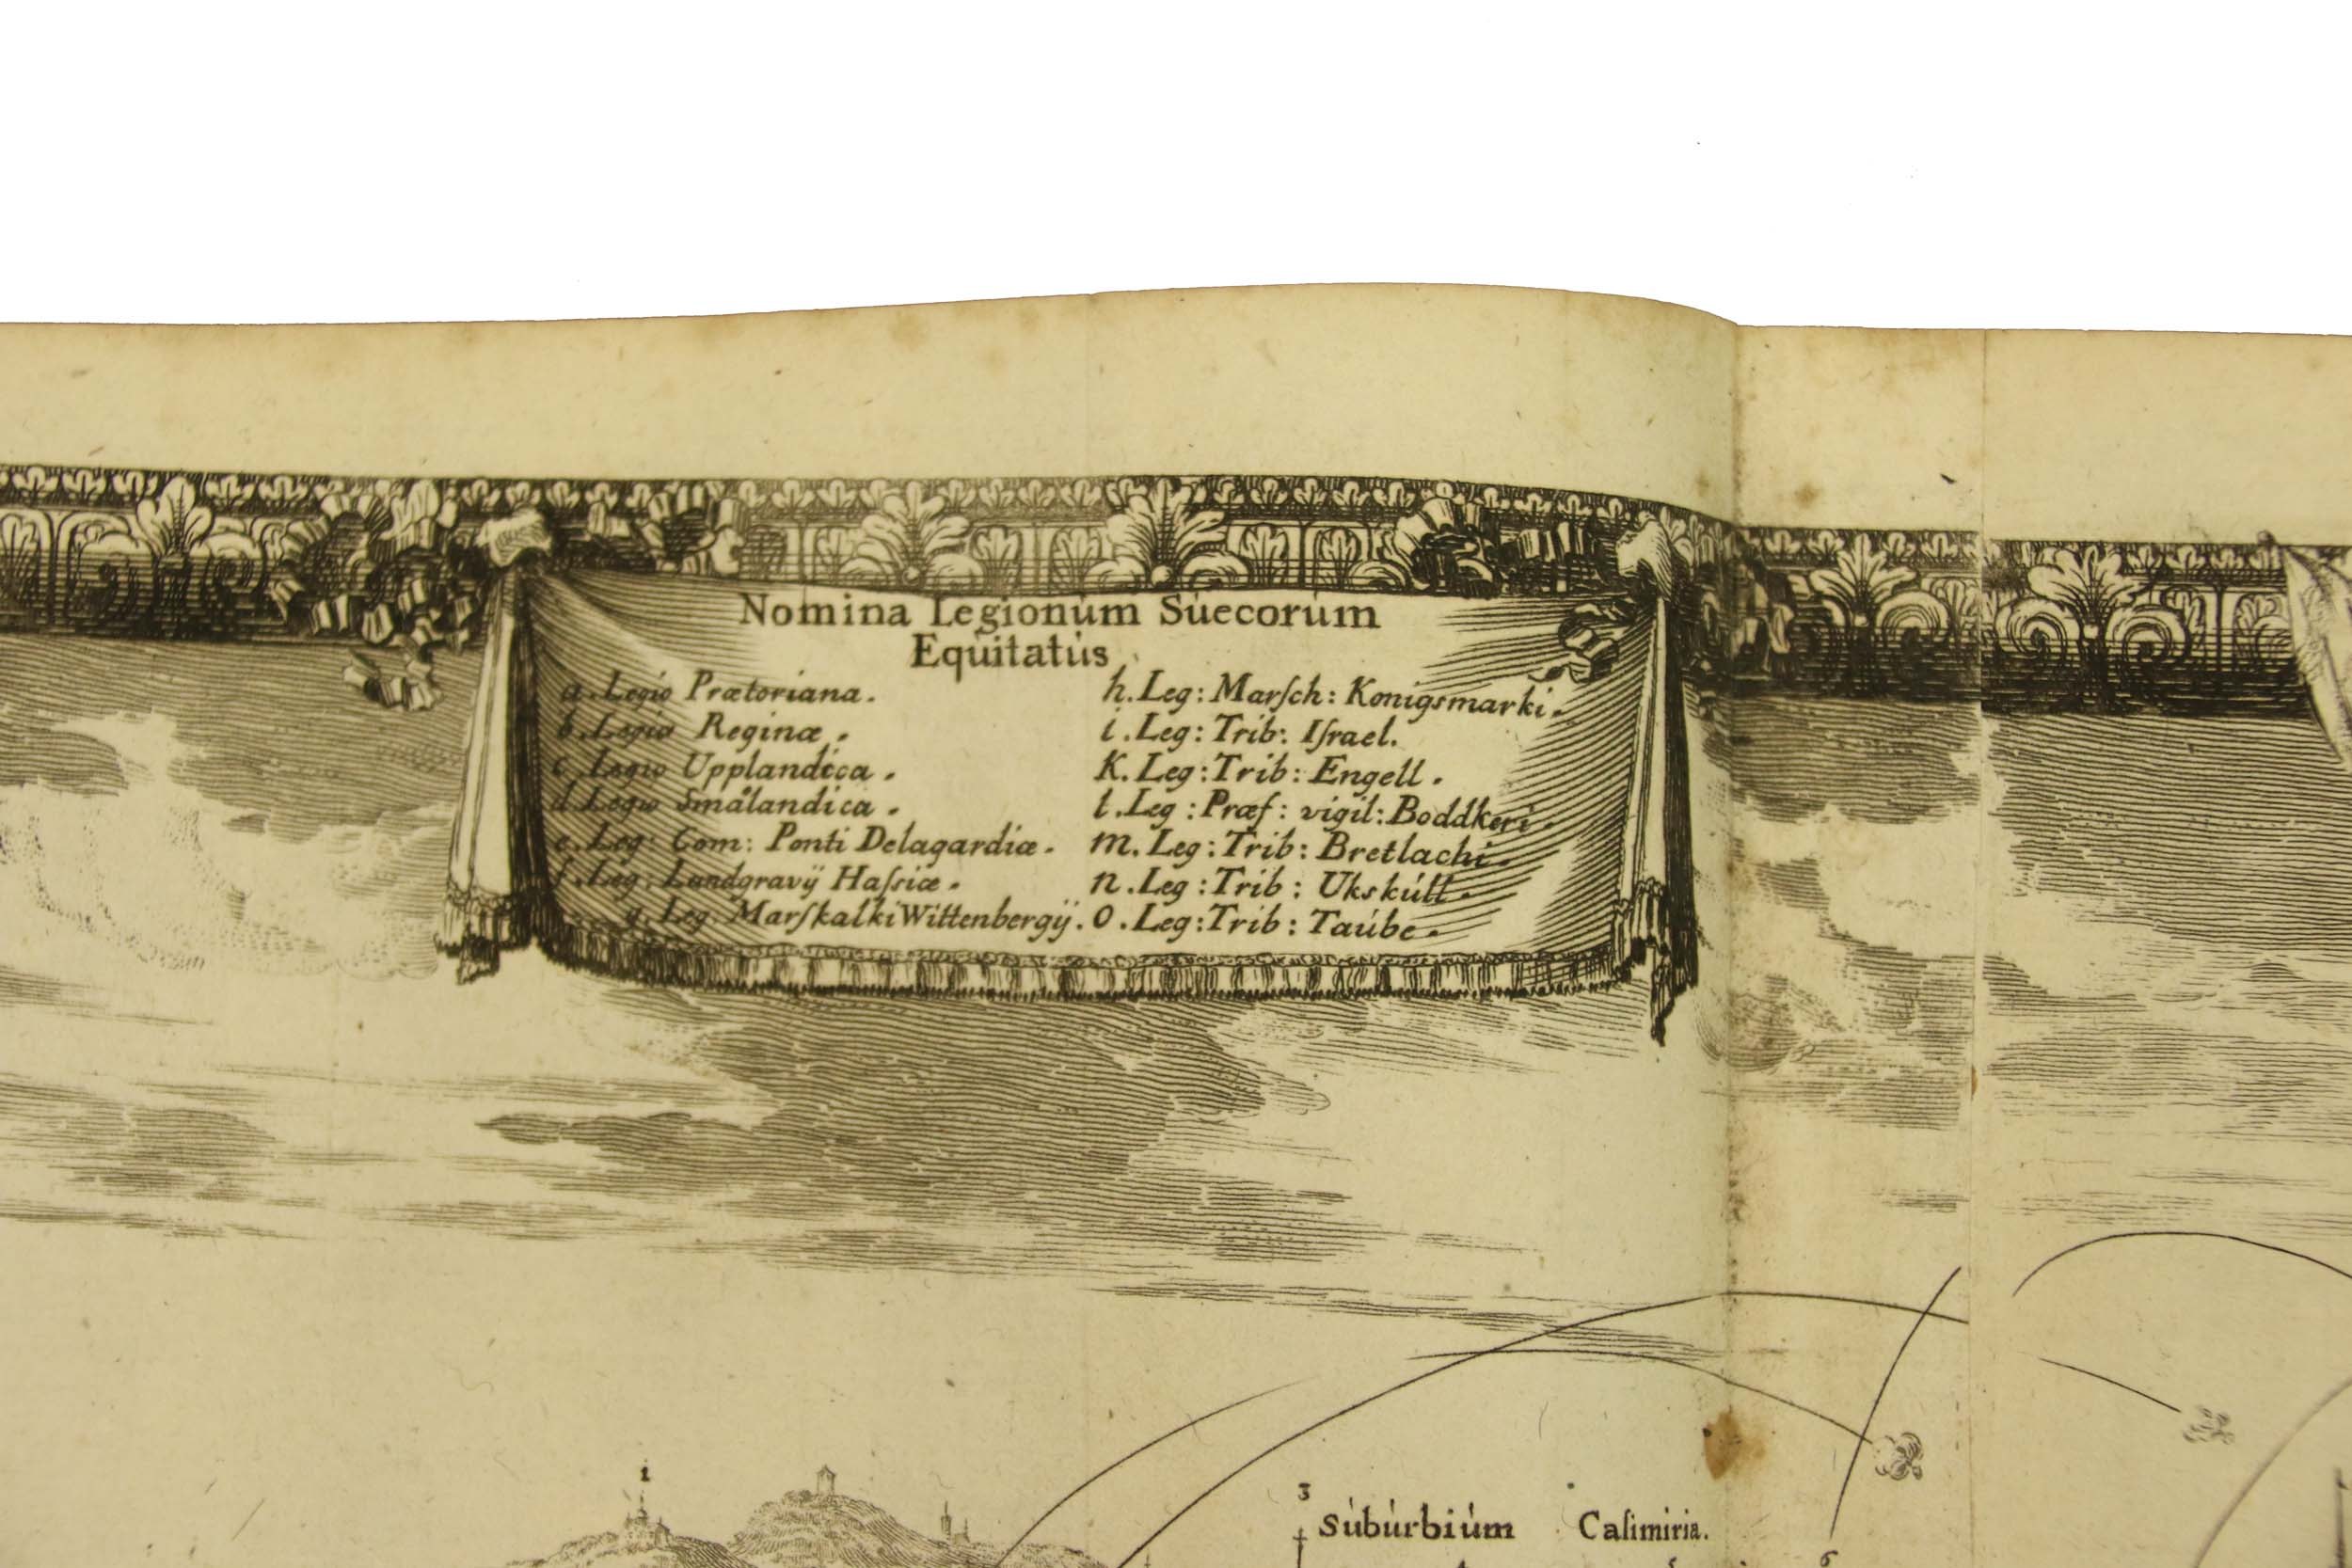 Nomina Legionúm Súecorúm
Equitatús
a. Legio Prætoriana.
b. Legio Reginæ.
c. Legio Upplandica.
d Legio Smålandica.
e. Leg: Com: Ponti Delagardiæ.
f. Leg. Landgravÿ Haſsiæ.
g. Leg Marſkalki Wittenbergÿ.
h. Leg: Marſch: Konigsmarki.
i. Leg: Trib: Iſrael.
K. Leg: Trib: Engell.
l. Leg: Præf: vigil: Boddkeri.
m. Leg: Trib: Bretlachi.
n. Leg: Trib: Ukskúll.
o. Leg: Trib: Taúbe.
1
3
Súbúrbiúm Caſimiria.
6